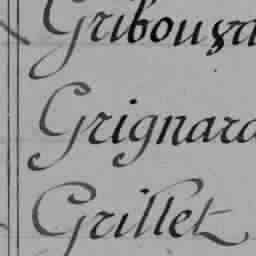 Gribouva
Grignard
Grillet